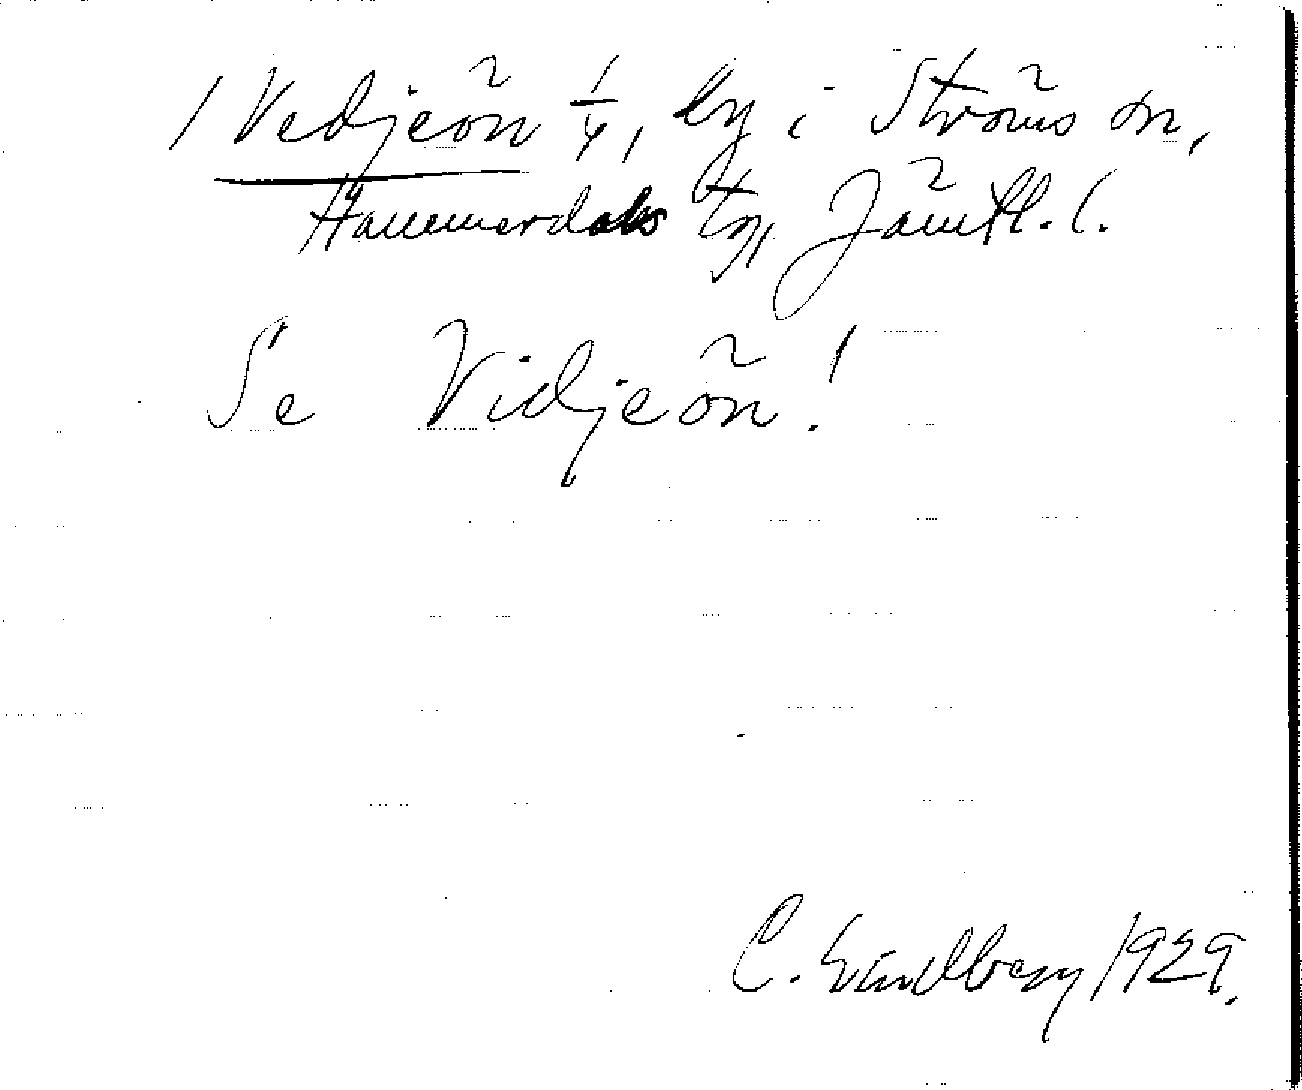 / Vedjeön 1/4, by i Ströms sn,
Hammerdals tg, Jämtl. l.
Se Vidjeön!
C. Lindberg 1929.